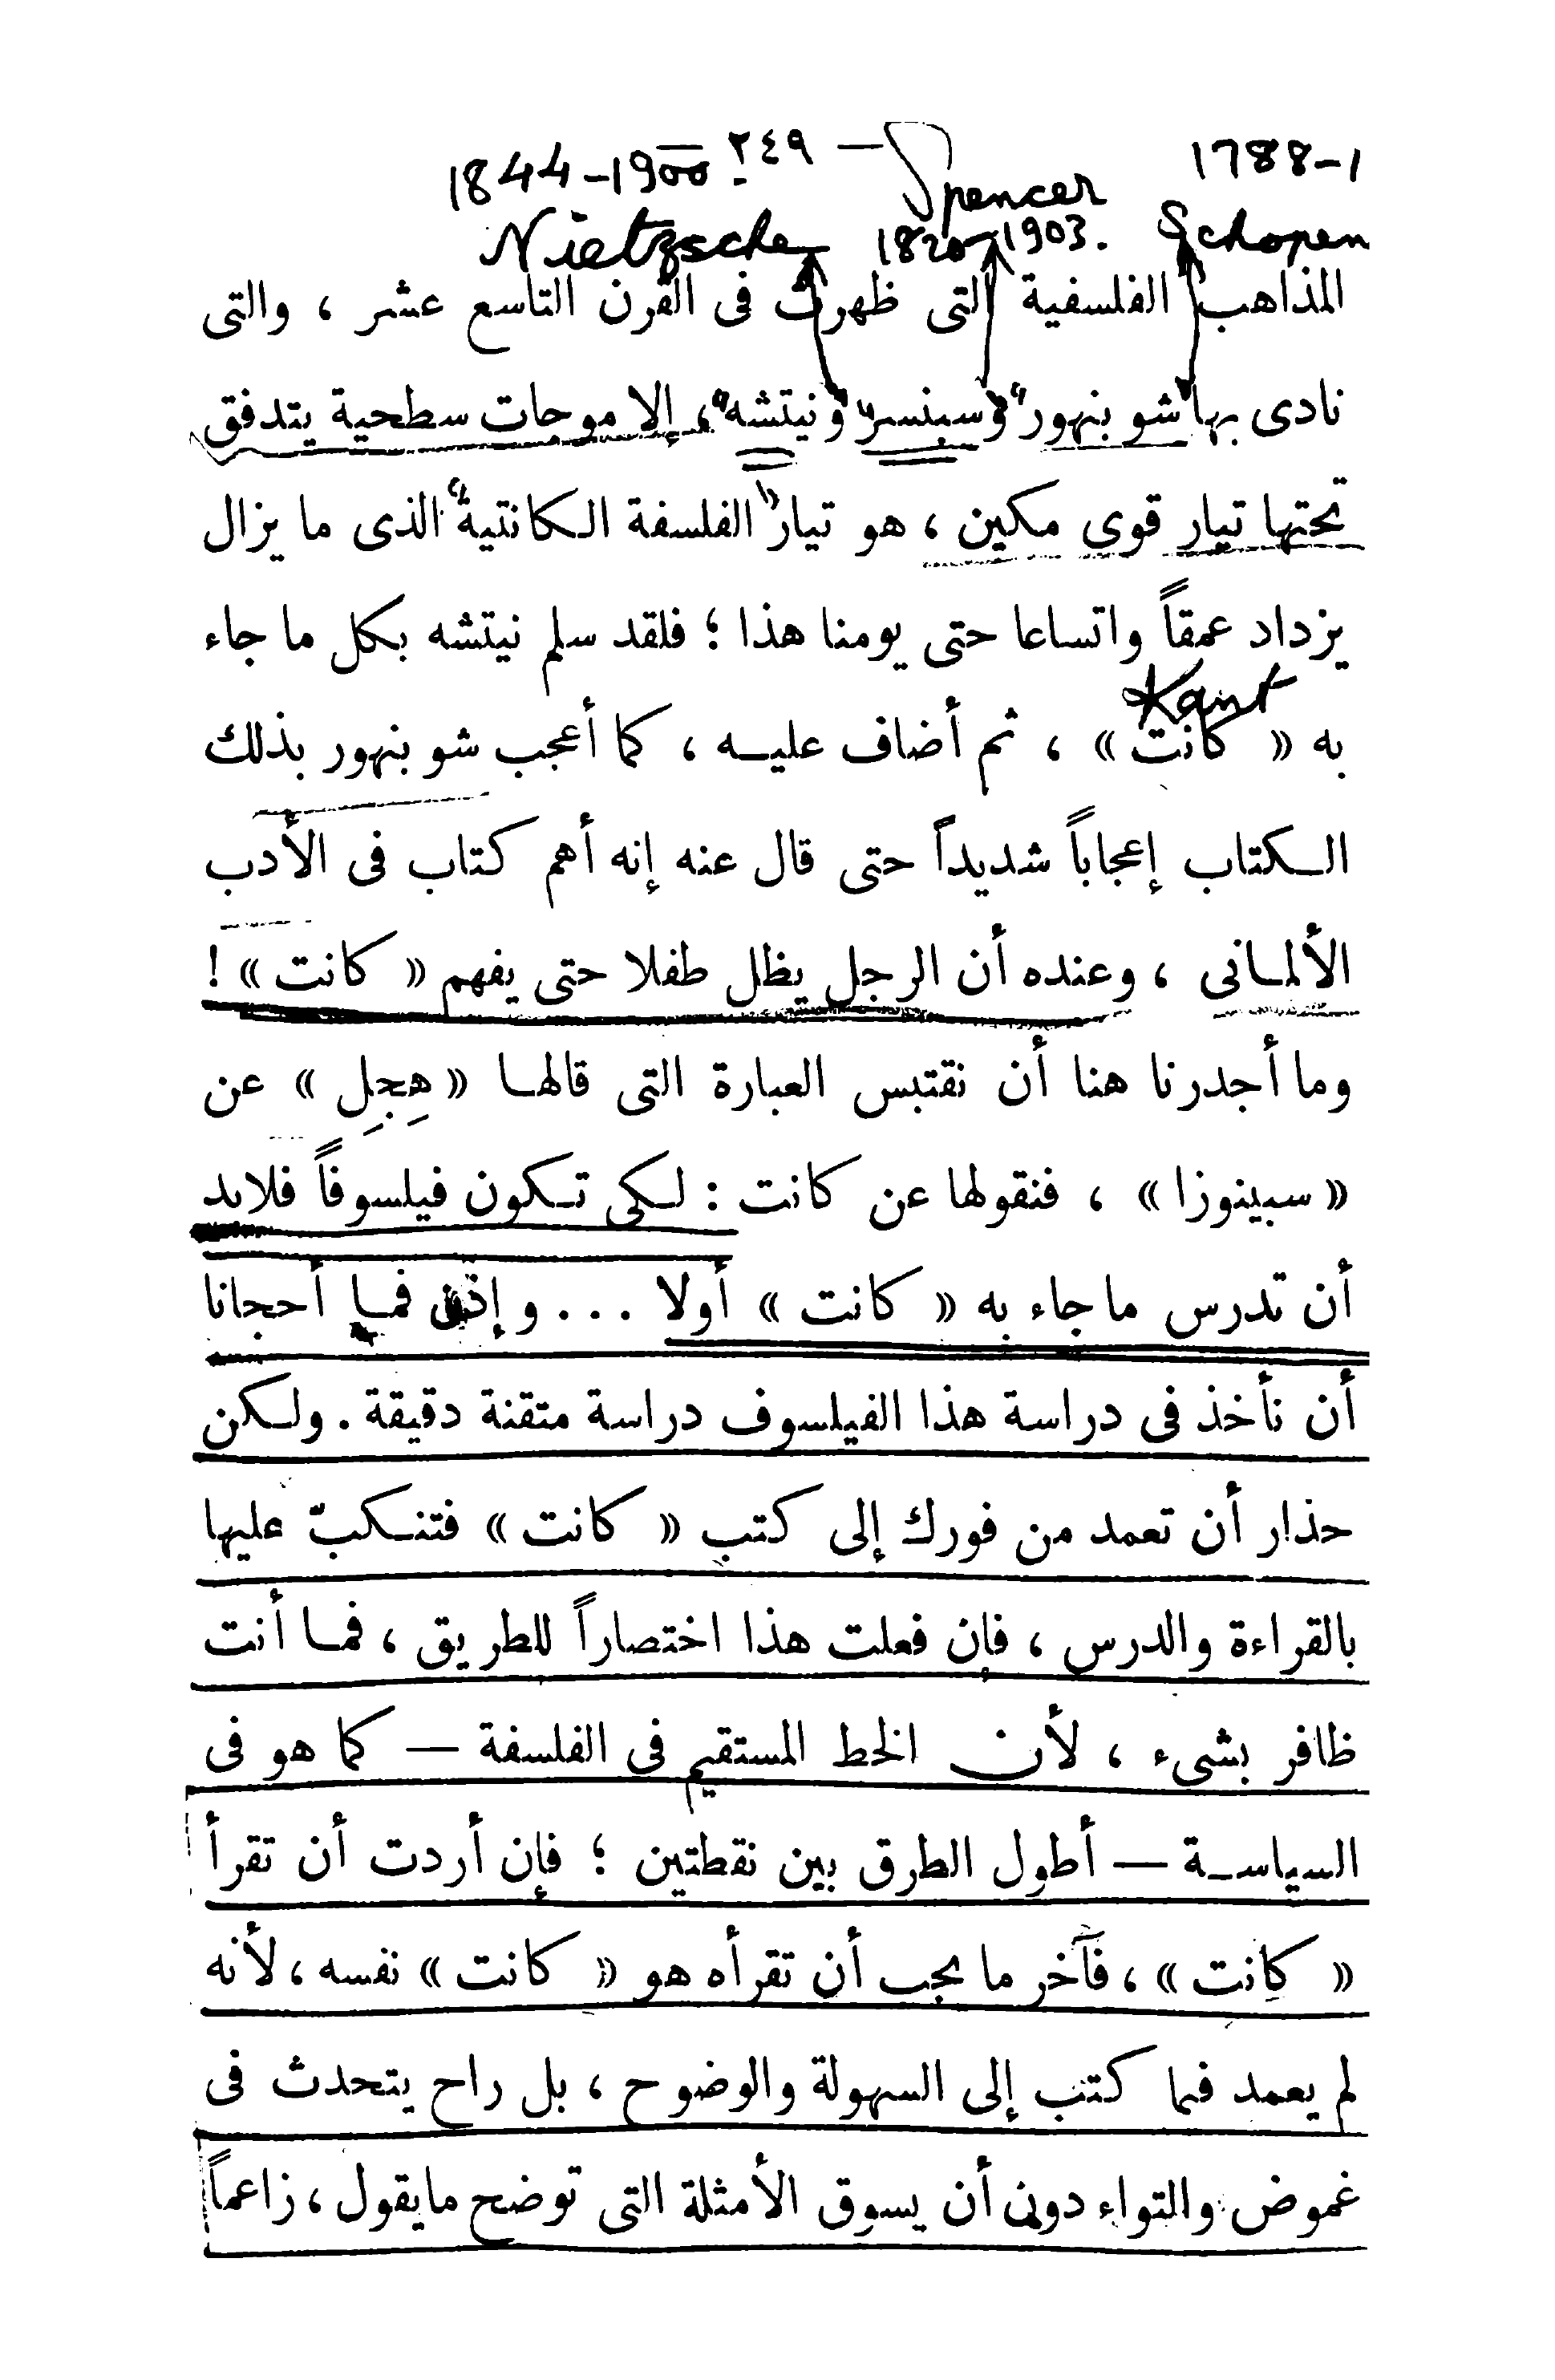 — ٢٤٩ —
1844-1900 Spencer 1788-1
Nietzsche 1820-1903. Schopen
المذاهب الفلسفية التى ظهرت فى القرن التاسع عشر ، والتى
نادى بها "شو بنهور" و"سبنسر" و"نيتشه" ، إلا موجات سطحية يتدفق
تحتها تيار قوى مكين ، هو تيار "الفلسفة الكانتية" الذى ما يزال
يزداد عمقاً واتساعا حتى يومنا هذا ؛ فلقد سلم نيتشه بكل ما جاء
Kant
به « كانت » ، ثم أضاف عليه ، كما أعجب شو بنهور بذلك
الكتاب إعجاباً شديداً حتى قال عنه إنه أهم كتاب فى الأدب
الألمانى ، وعنده أن الرجل يظل طفلا حتى يفهم « كانت » !
وما أجدرنا هنا أن نقتبس العبارة التى قالها « هِجِل » عن
« سبينوزا » ، فنقولها عن كانت : لكى تكون فيلسوفاً فلابد
أن تدرس ما جاء به « كانت » أولا ... وإذن فما أحجانا
أن نأخذ فى دراسة هذا الفيلسوف دراسة متقنة دقيقة . ولكن
حذار أن تعمد من فورك إلى كتب « كانت » فتنكبّ عليها
بالقراءة والدرس ، فإن فعلت هذا اختصاراً للطريق ، فما أنت
ظافر بشىء ، لأن الخط المستقيم فى الفلسفة — كما هو فى
السياسة — أطول الطرق بين نقطتين ؛ فإن أردت أن تقرأ
« كانت » ، فآخر ما يجب أن تقرأه هو « كانت » نفسه ، لأنه
لم يعمد فيما كتب إلى السهولة والوضوح ، بل راح يتحدث فى
غموض والتواء دون أن يسوق الأمثلة التى توضح ما يقول ، زاعماً